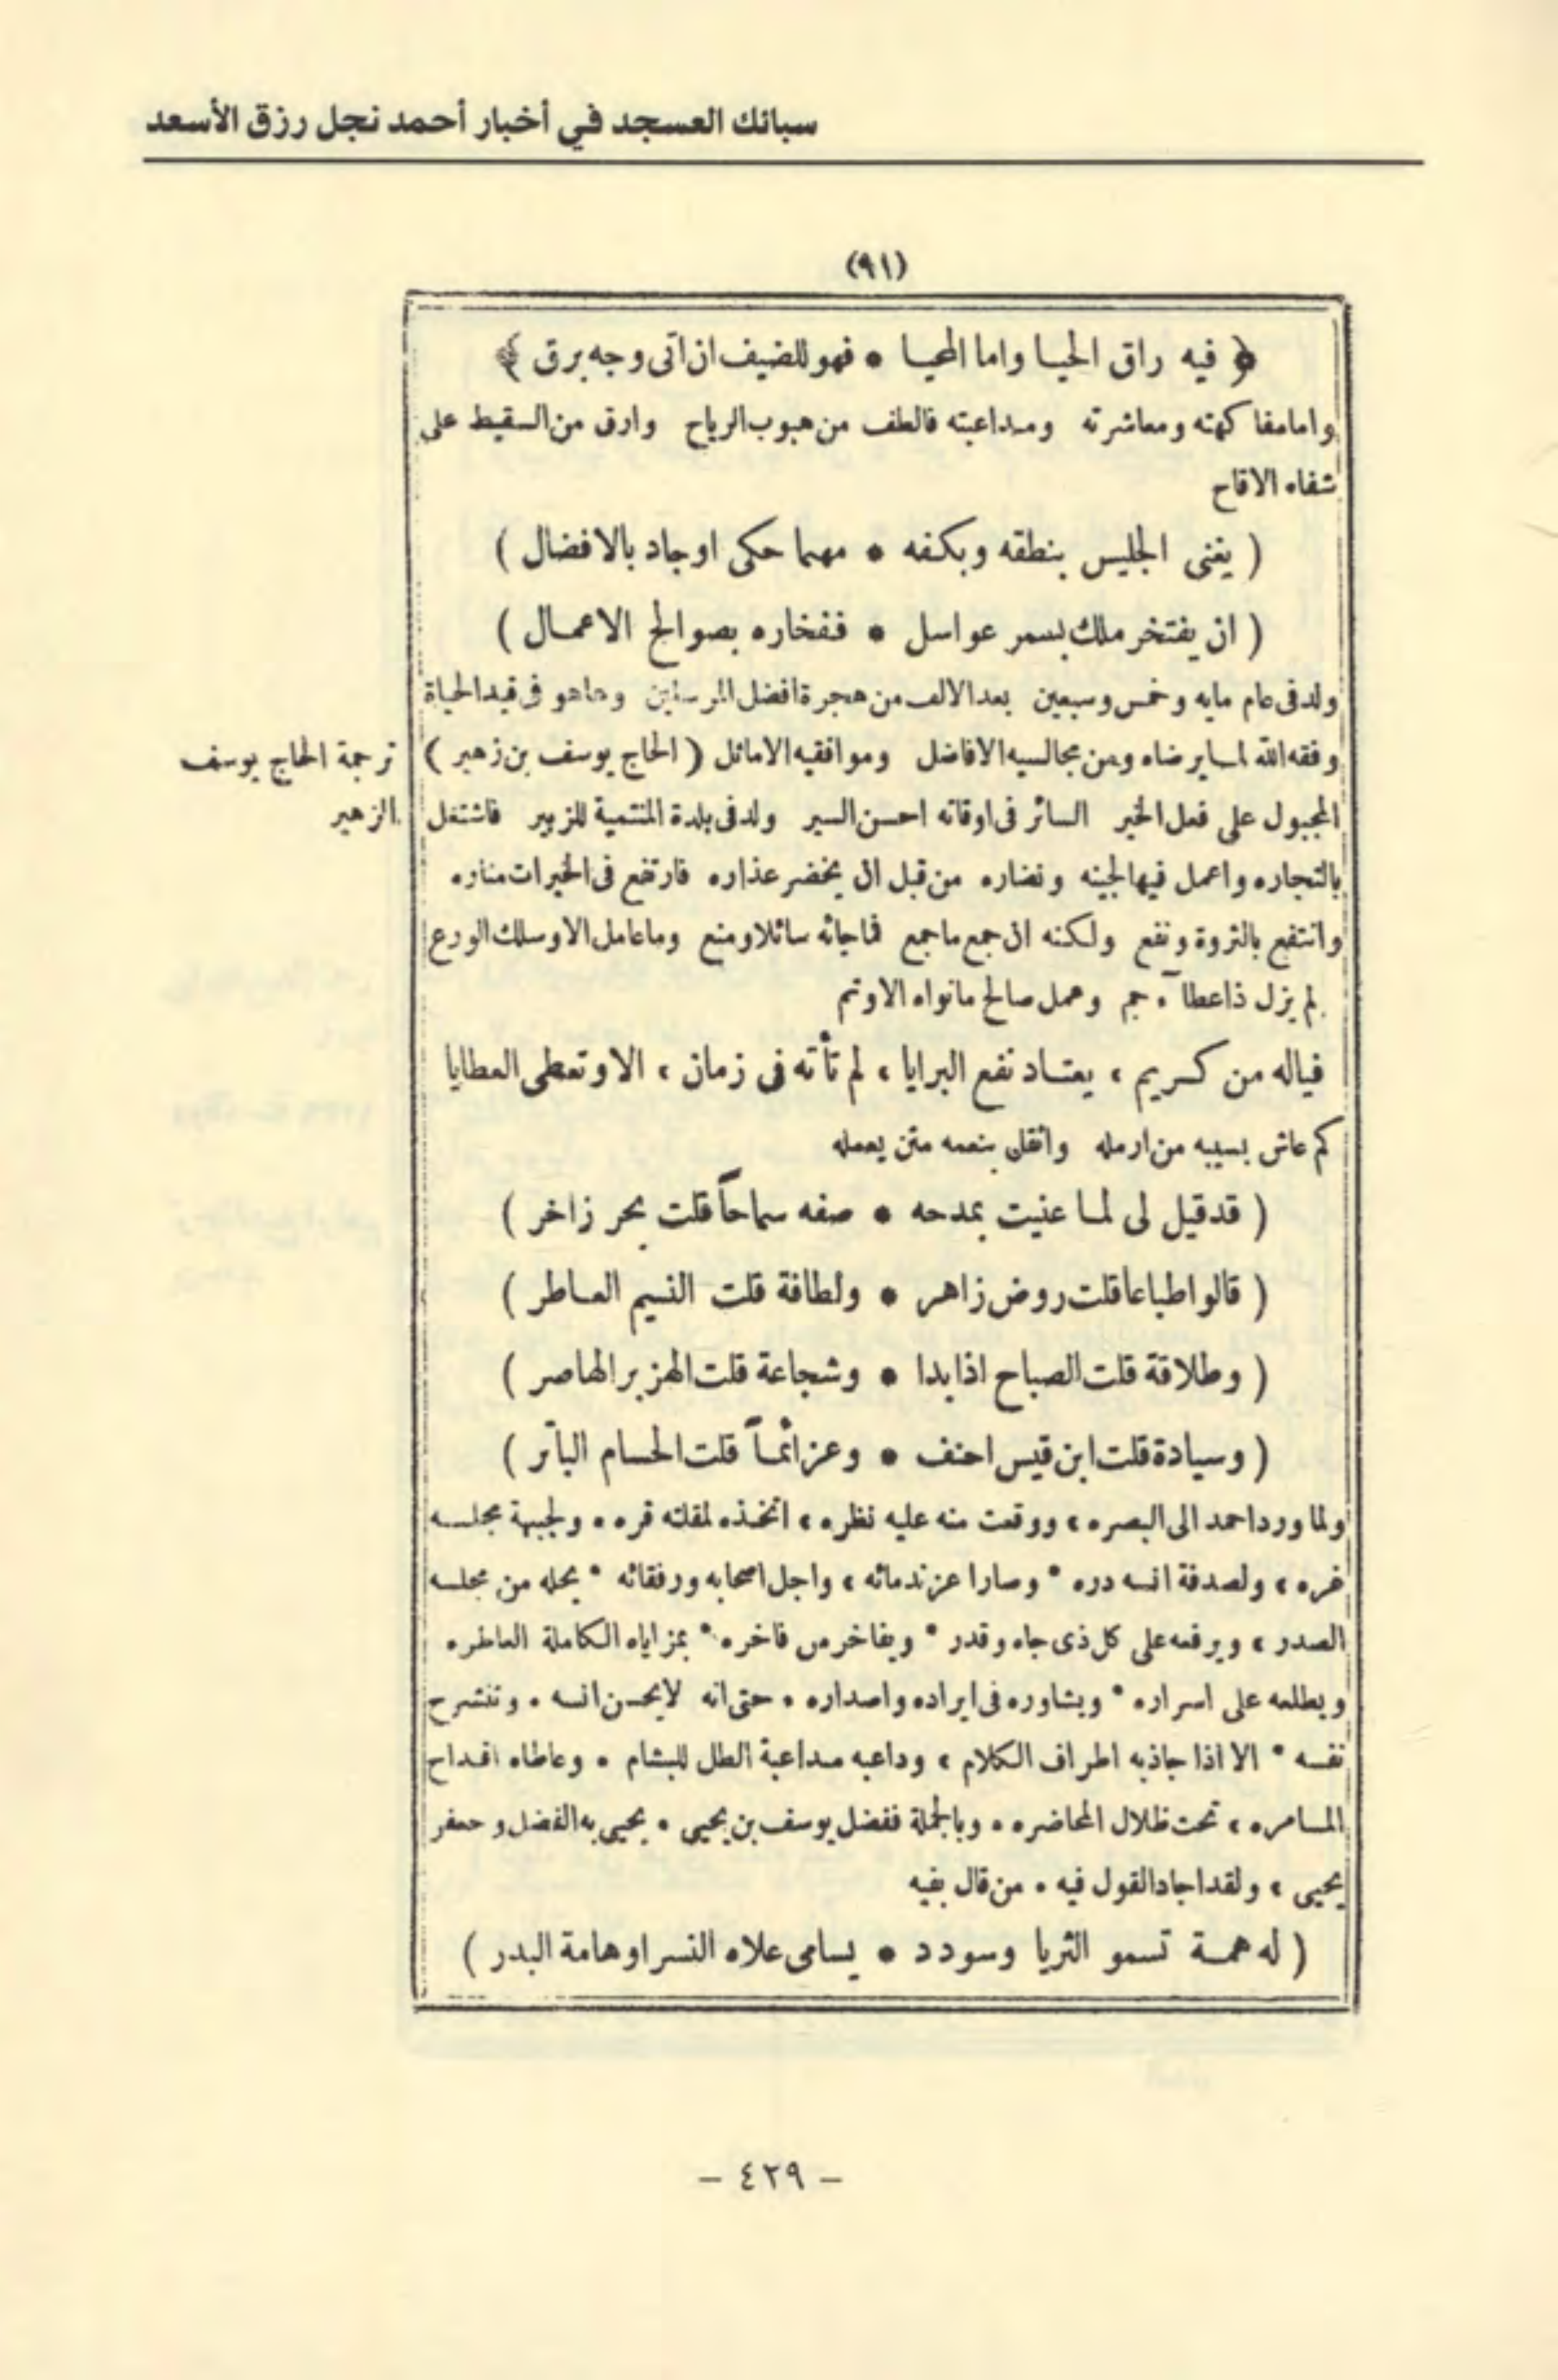 سبائك العسجد في أخبار أحمد نجل رزق الأسعد
(٩١)
﴿ فيه راق الحيا واما المحيا * فهو للضيف ان آتى وجه برق ﴾
واما مفاكهته ومعاشرته ومداعبته فالطف من هبوب الرياح وارق من السقيط على
شفاه الاقاح
( يغنى الجليس بنطقه وبكفه * مهما حكى اوجاد بالافضال )
( ان يفتخر ملك بسمر عواسل * ففخاره بصوالح الاعمال )
ولد فى عام مايه وخمس وسبعين بعد الالف من هجرة افضل المرسلين وهاهو فى قيد الحياة
وفقه الله لما يرضاه ومن مجالسيه الافاضل وموافقيه الاماثل ( الحاج يوسف بن زهير )
ترجمة الحاج يوسف
الزهير
المجبول على فعل الخير السائر فى اوقاته احسن السير ولد فى بلدة المنتمية للزبير فاشتغل
بالتجاره واعمل فيها لجينه ونضاره من قبل ان يخضر عذاره فارتفع فى الخيرات مناره
وانتفع بالثروة ونفع ولكنه ان جمع ما جمع فما جائه سائلا ومنع وما عامل الا وسلك الورع
لم يزل ذا عطآء جم وعمل صالح مانواه الا وتم
فياله من كريم ، يعتاد نفع البرايا ، لم تأته فى زمان ، الا وتعطى العطايا
كم عاش بسيبه من ارمله واثقل بنعمه متن يعمله
( قد قيل لى لما عنيت بمدحه * صفه سماحاً قلت بحر زاخر )
( قالوا طباعا قلت روض زاهر * ولطافة قلت النسيم العاطر )
( وطلاقة قلت الصباح اذا بدا * وشجاعة قلت الهزبر الهاصر )
( وسيادة قلت ابن قيس احنف * وعزائماً قلت الحسام الباتر )
ولما ورد احمد الى البصره ، ووقعت منه عليه نظره ، اتخذه لمقلته قره . ولجبهة مجلسه
غره ، ولصدفة انسه دره * وصار اعز ندمائه ، واجل اصحابه ورفقائه * يحله من مجلسه
الصدر ، ويرفعه على كل ذى جاه وقدر * ويفاخر من فاخره * بمزاياه الكاملة العاطره
ويطلعه على اسراره * ويشاوره فى ايراده واصداره . حتى انه لا يحسن انسه . وتنشرح
نفسه * الا اذا جاذبه اطراف الكلام ، وداعبه مداعبة الطل للبشام . وعاطاه اقداح
المسامره ، تحت ظلال المحاضره . وبالجملة ففضل يوسف بن يحيى . يحيى به الفضل وجعفر
يحيى ، ولقد اجاد القول فيه . من قال بفيه
( له همة تسمو الثريا وسودد * يسامى علاه النسر اوهامة البدر )
- ٤٢٩ -